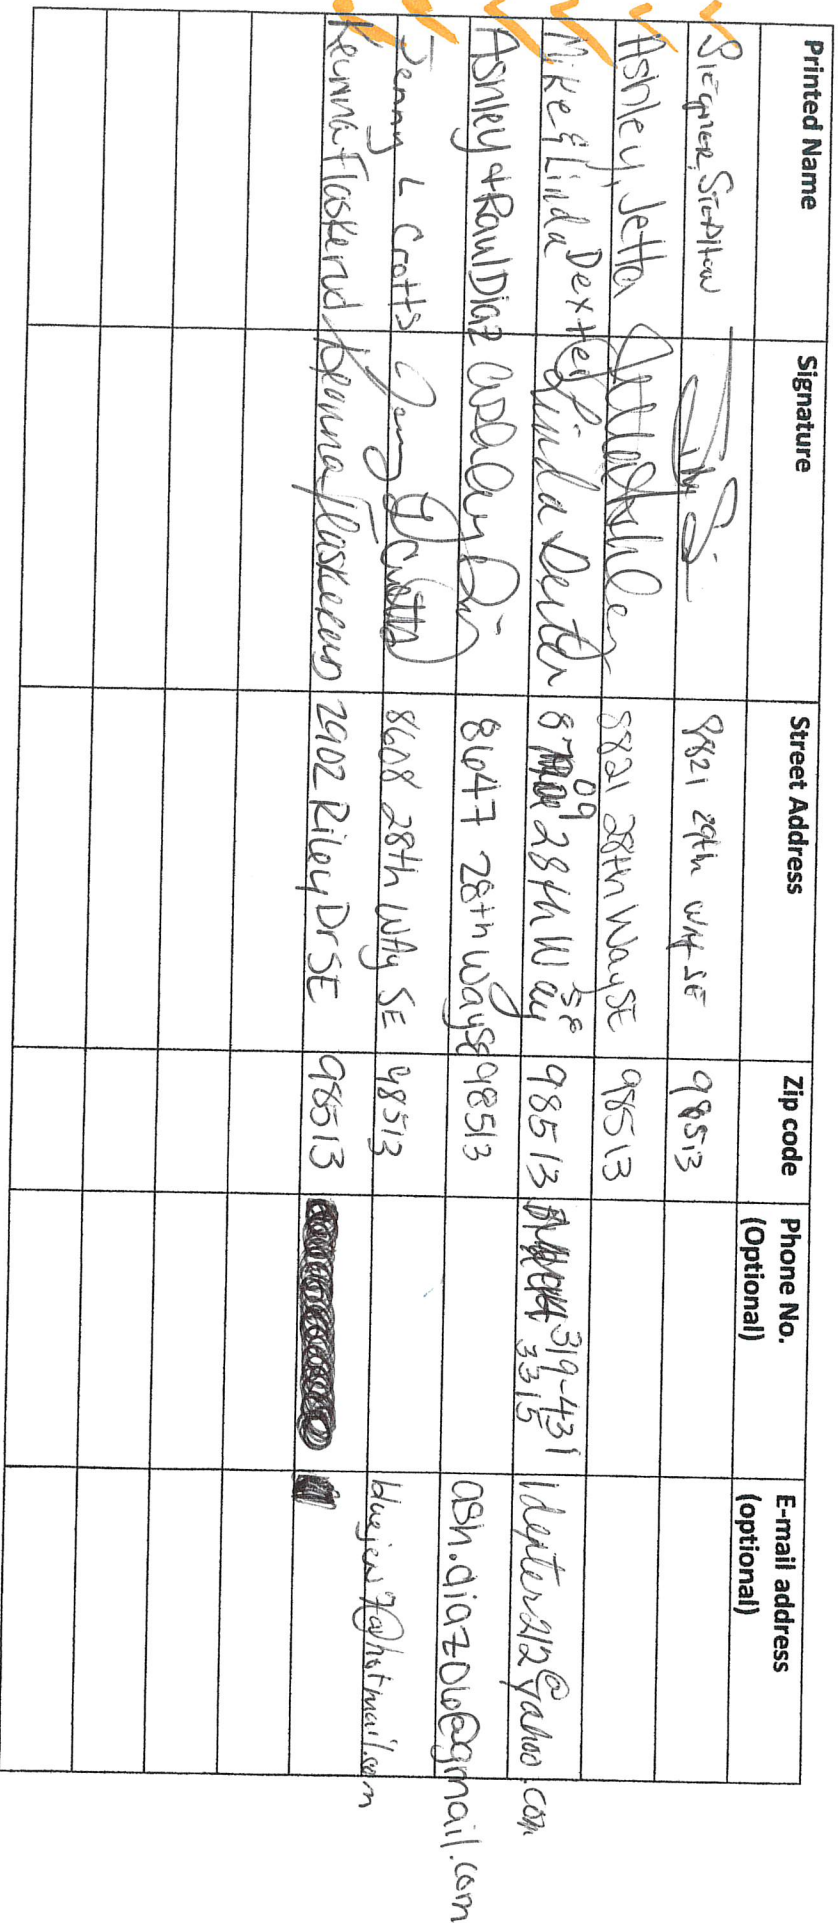 Printed Name Signature Street Address Zip code Phone No. (Optional) E-mail address (optional)
98513
Ashley, Jetta Jetta Ashley 8821 28th Way SE 98513
Mike & Linda Dexter Linda Dexter 8709 28th Way SE 98513 319-431 3315 @yahoo.com
Ashley & Raul Diaz Ashley 8647 28th Way SE 98513 ash.diaz06@gmail.com
Jenny L Crotts Jenny L Crotts 8608 28th Way SE 98513 @hotmail.com
Keunna Flaskerud Keunna Flaskerud 2902 Riley Dr SE 98513